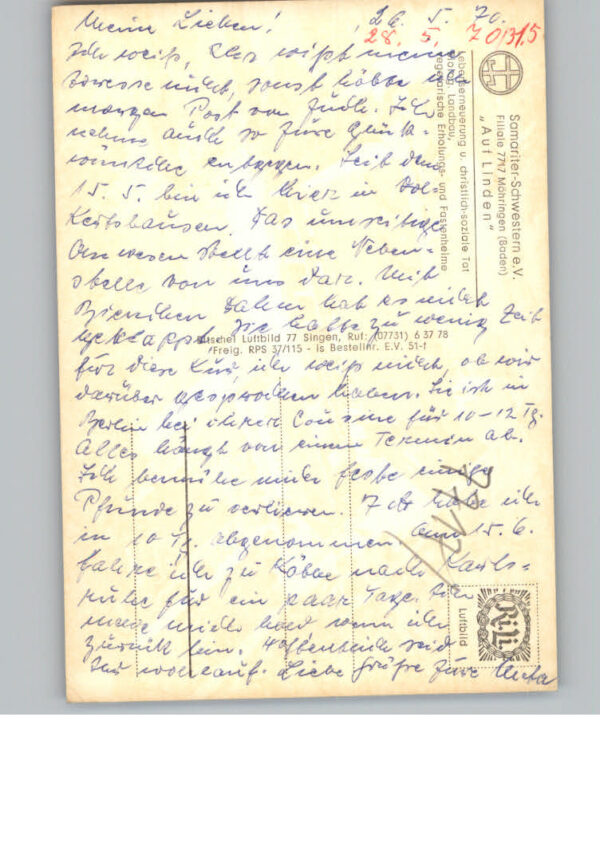 Meine Lieben! 26. 5. 70.
28. 5. 70
Ich weiß, Ihr wißt meine
Adresse nicht, sonst hätte ich
morgen Post von Euch. Ich
nehme auch so Eure Glück-
wünsche entgegen. Seit dem
15. 5. bin ich hier in
Das umseitige
Anwesen stellt eine Neben-
stelle von uns dar. Mit
Dahm hat es nicht
geklappt, sie hatte zu wenig Zeit
für diese Kur, ich weiß nicht, ob wir
darüber gesprochen haben. Sie ist in
Berlin bei ihrer Cousine für 10–12 Tg.
Alles hängt von einem Termin ab.
Ich bemühe mich einige
Pfunde zu verlieren. 7 habe ich
in 10 Tg. abgenommen. Am 15. 6.
fahre ich zu nach Karls-
ruhe für ein paar Tage. Ich
melde mich wenn ich
zurück bin. Hoffentlich seid
Ihr wohlauf. Liebe Grüße Eure
Samariter-Schwestern e.V.
Filiale 7717 Möhringen (Baden)
„Auf Linden"
Lebenserneuerung u. christlich-soziale Tat
Landbau,
vegetarische Erholungs- und Fastenheime
Luftbild 77 Singen, Ruf: (07731) 6 37 78
Freig. RPS 37/115 - is Bestellnr. E.V. 51-1
Luftbild